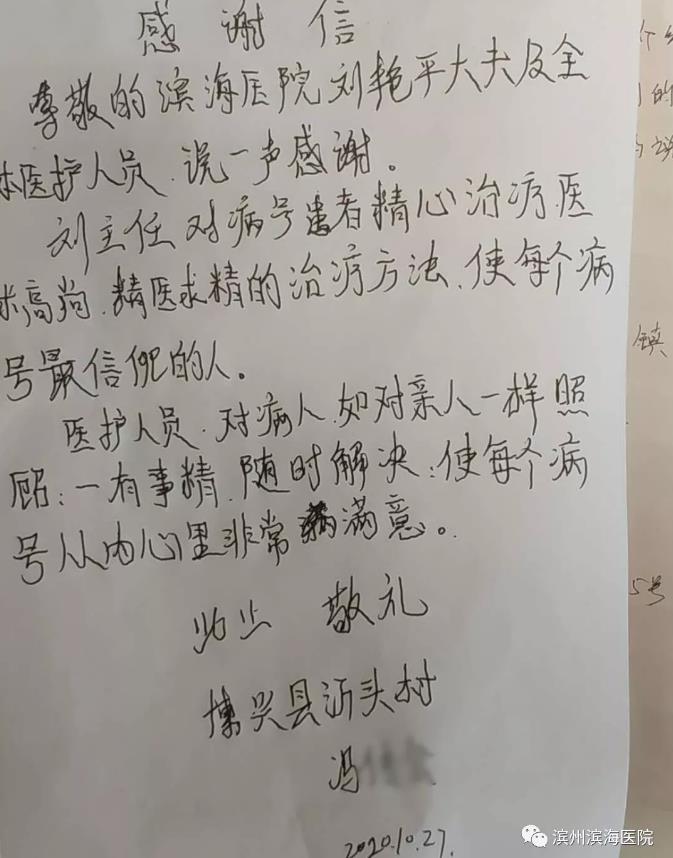 感谢信
尊敬的滨海医院刘艳平大夫及全
体医护人员.说一声感谢。
刘主任对病号患者精心治疗.医
术高尚.精医求精的治疗方法.使每个病
号最信的人。
医护人员.对病人.如对亲人一样照
顾:一有事精.随时解决:使每个病
号从内心里非常满意。
此止 敬礼
博兴县沂头村
冯
2020.10.27.
的
镇
5号
滨州滨海医院